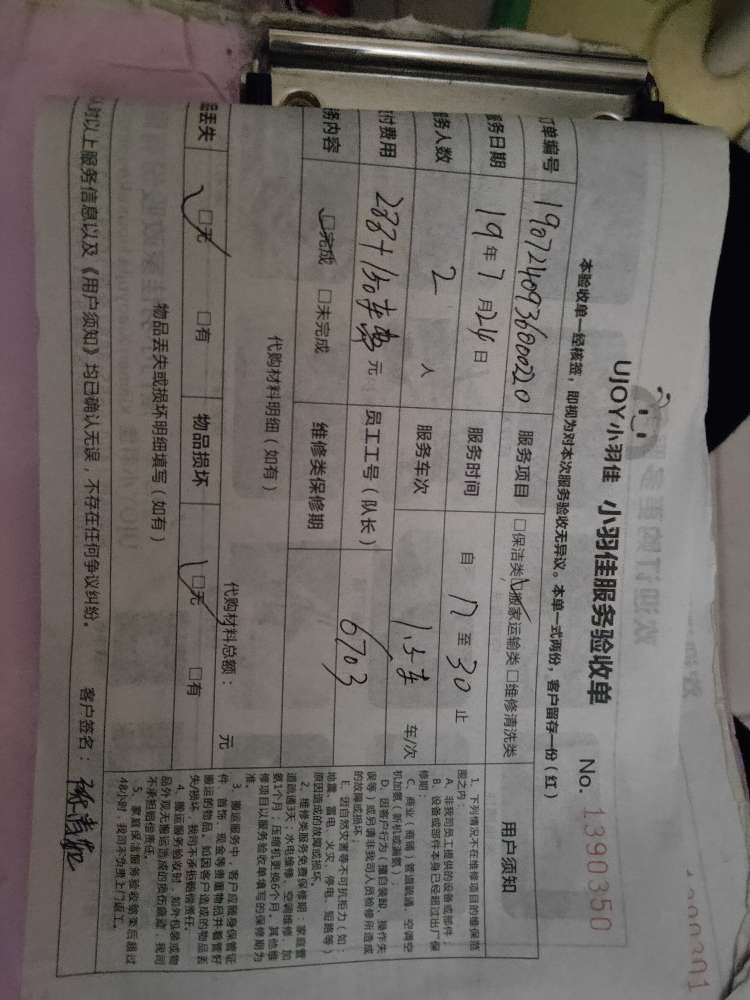 UJOY小羽佳 小羽佳服务验收单 No. 1390350
本验收单一经核签，即视为对本次服务验收无异议。本单一式两份，客户留存一份（红）
订单编号 190724093600020 服务项目 □保洁类 □搬家运输类 □维修清洗类
服务日期 19年7月24日 服务时间 自 17 至 30 止
服务人数 2 人 服务车次 1.5车 车/次
付费用 288+150车费 元 员工工号（队长） 6703
务内容 □完成 □未完成 维修类保修期
代购材料明细（如有）
代购材料总额： 元
丢失 □无 □有 物品损坏 □无 □有
物品丢失或损坏明细填写（如有）
对以上服务信息以及《用户须知》均已确认无误，不存在任何争议纠纷。 客户签名：
用户须知
1、下列情况不在维修项目的维保范
围之内
A、非我司员工提供的设备或部件；
B、设备或部件本身已经超过出厂保
修期；
C、商业（商铺）管道疏通、空调空
机加氨（新机或漏氨）；
D、因客户行为（擅自装卸、操作失
误等）或另请非我司人员检修所造成
的故障或损坏；
E、因自然灾害等不可抗拒力（如：
地震、雷电、火灾、停电、短路等）
原因造成的故障或损坏。
2、维修类服务免费保修期：家庭管
道疏通3天；水电维修、空调维修、加
氨1个月；压缩机更换6个月。其他维
修项目以服务验收单填写的保修期为
准。
3、搬运服务中，客户应随身保管证
件、首饰、现金等贵重物品并看管好
搬运的物品。如因客户造成的物品丢
失/损坏，我司不承担赔偿责任。
4、搬运服务验收时，如外包装或物
品外观无搬运造成的损伤痕迹，我司
不承担赔偿责任。
5、家庭保洁服务验收结束后超过
48小时，我司不负责上门返工。